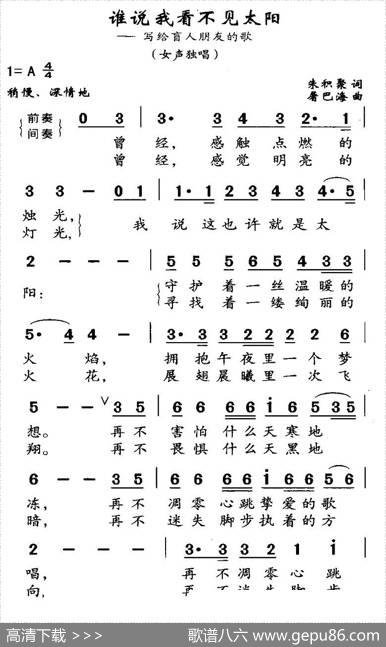 谁说我看不见太阳
—— 写给盲人朋友的歌
（女声独唱）
1=A 4/4
朱积聚 词
稍慢、深情地
屠巴海 曲
前奏 0 3 3· 3 4 3 2· 1
间奏
曾 经， 感 触 点 燃 的
曾 经， 感 觉 明 亮 的
3 3 - 0 1 1· 1 2 3 4 3 4· 5
烛 光， 我 说 这 也 许 就 是 太
灯 光，
2 - - - 5 5 5 6 5 4 3 3
阳： 守 护 着 一 丝 温 暖 的
寻 找 着 一 缕 绚 丽 的
5· 4 4 - 3· 3 3 2 2 2 2 2 6
火 焰， 拥 抱 午 夜 里 一 个 梦
火 花， 展 翅 晨 曦 里 一 次 飞
5 - - 3 5 6 6 6 6 i 6 5 3 5
想。 再 不 害 怕 什 么 天 寒 地
翔。 再 不 畏 惧 什 么 天 黑 地
6 - - 3 5 6 6 6 6 i 6 6 5 6
冻， 再 不 凋 零 心 跳 挚 爱 的 歌
暗， 再 不 迷 失 脚 步 执 着 的 方
2 - - - 3· 3 2 3 2 1 1
唱， 再 不 凋 零 心 跳
向， 再 不 迷 失 脚 步
高清下载 >>>
歌谱八六 www.gepu86.com